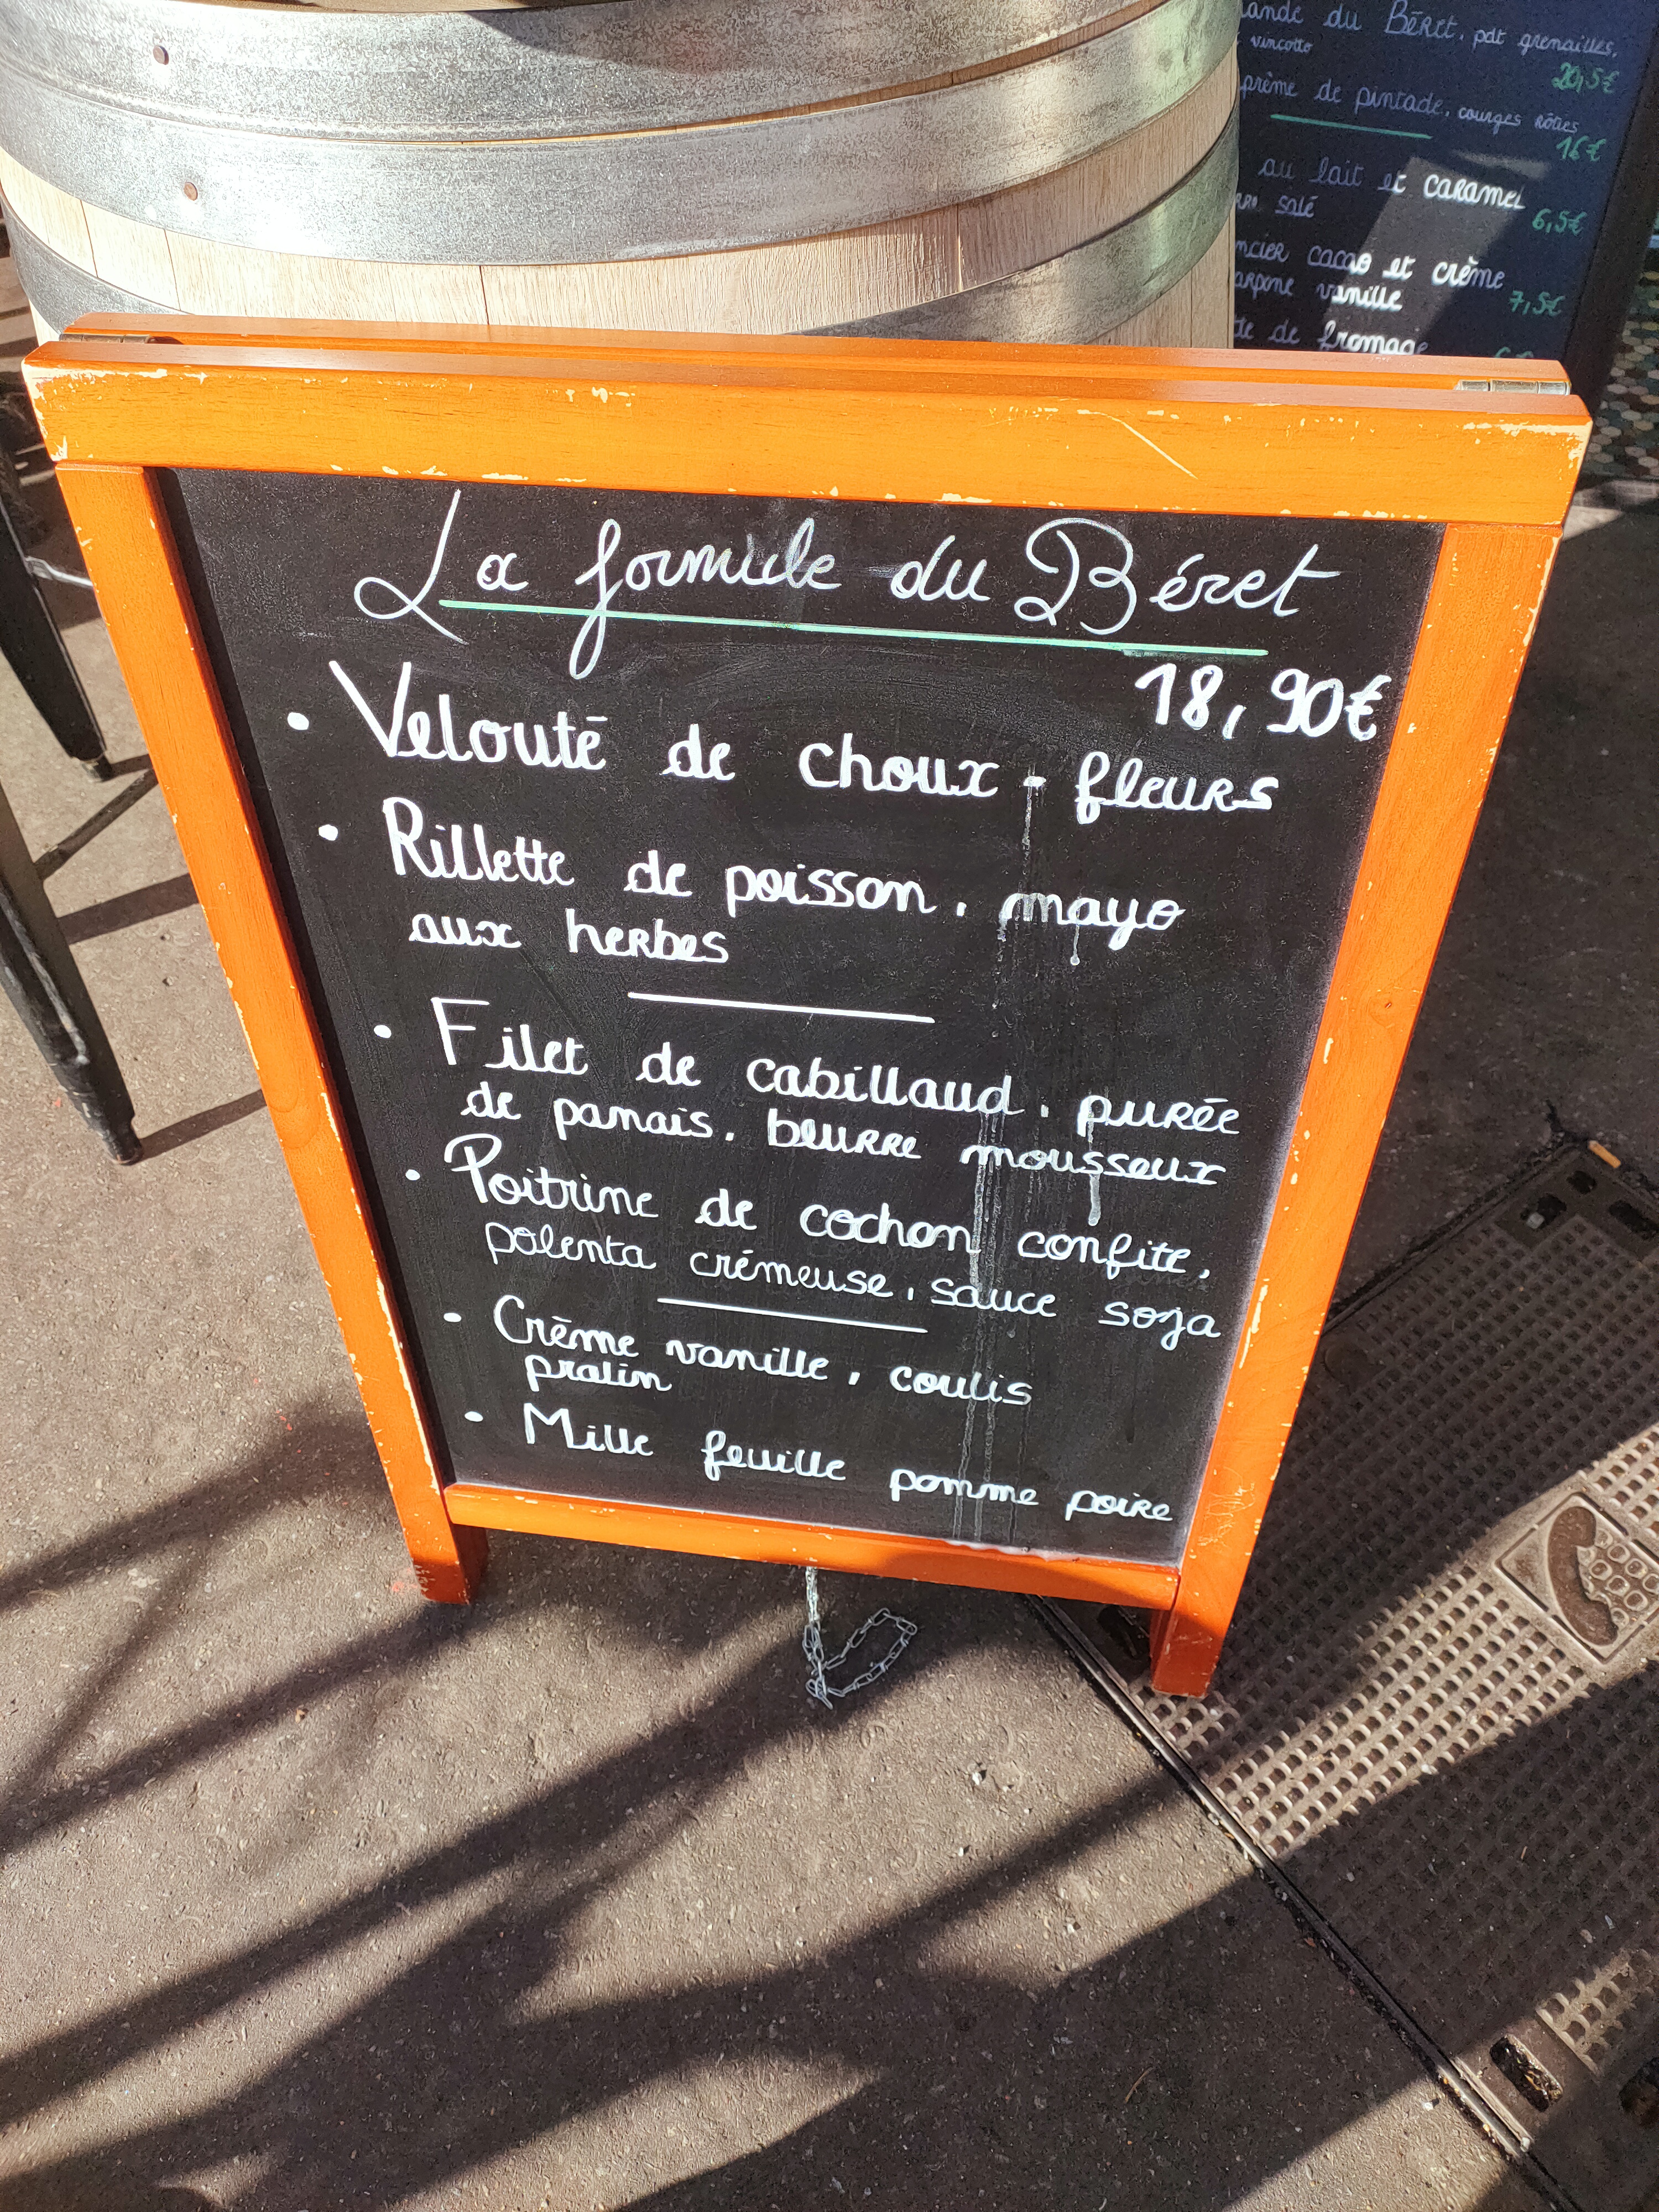 du Béret, pdt grenailles,
vincotto
20,5€
de pintade, courges rôties
16€
au lait et caramel
salé
6,5€
cacao et crème
vanille
7,5€
de fromage
La formule du Béret
18,90€
• Velouté de choux-fleurs
• Rillette de poisson, mayo
aux herbes
• Filet de cabillaud, purée
de panais, beurre mousseux
• Poitrine de cochon confite,
polenta crémeuse, sauce soja
• Crème vanille, coulis
pralin
• Mille feuille pomme poire